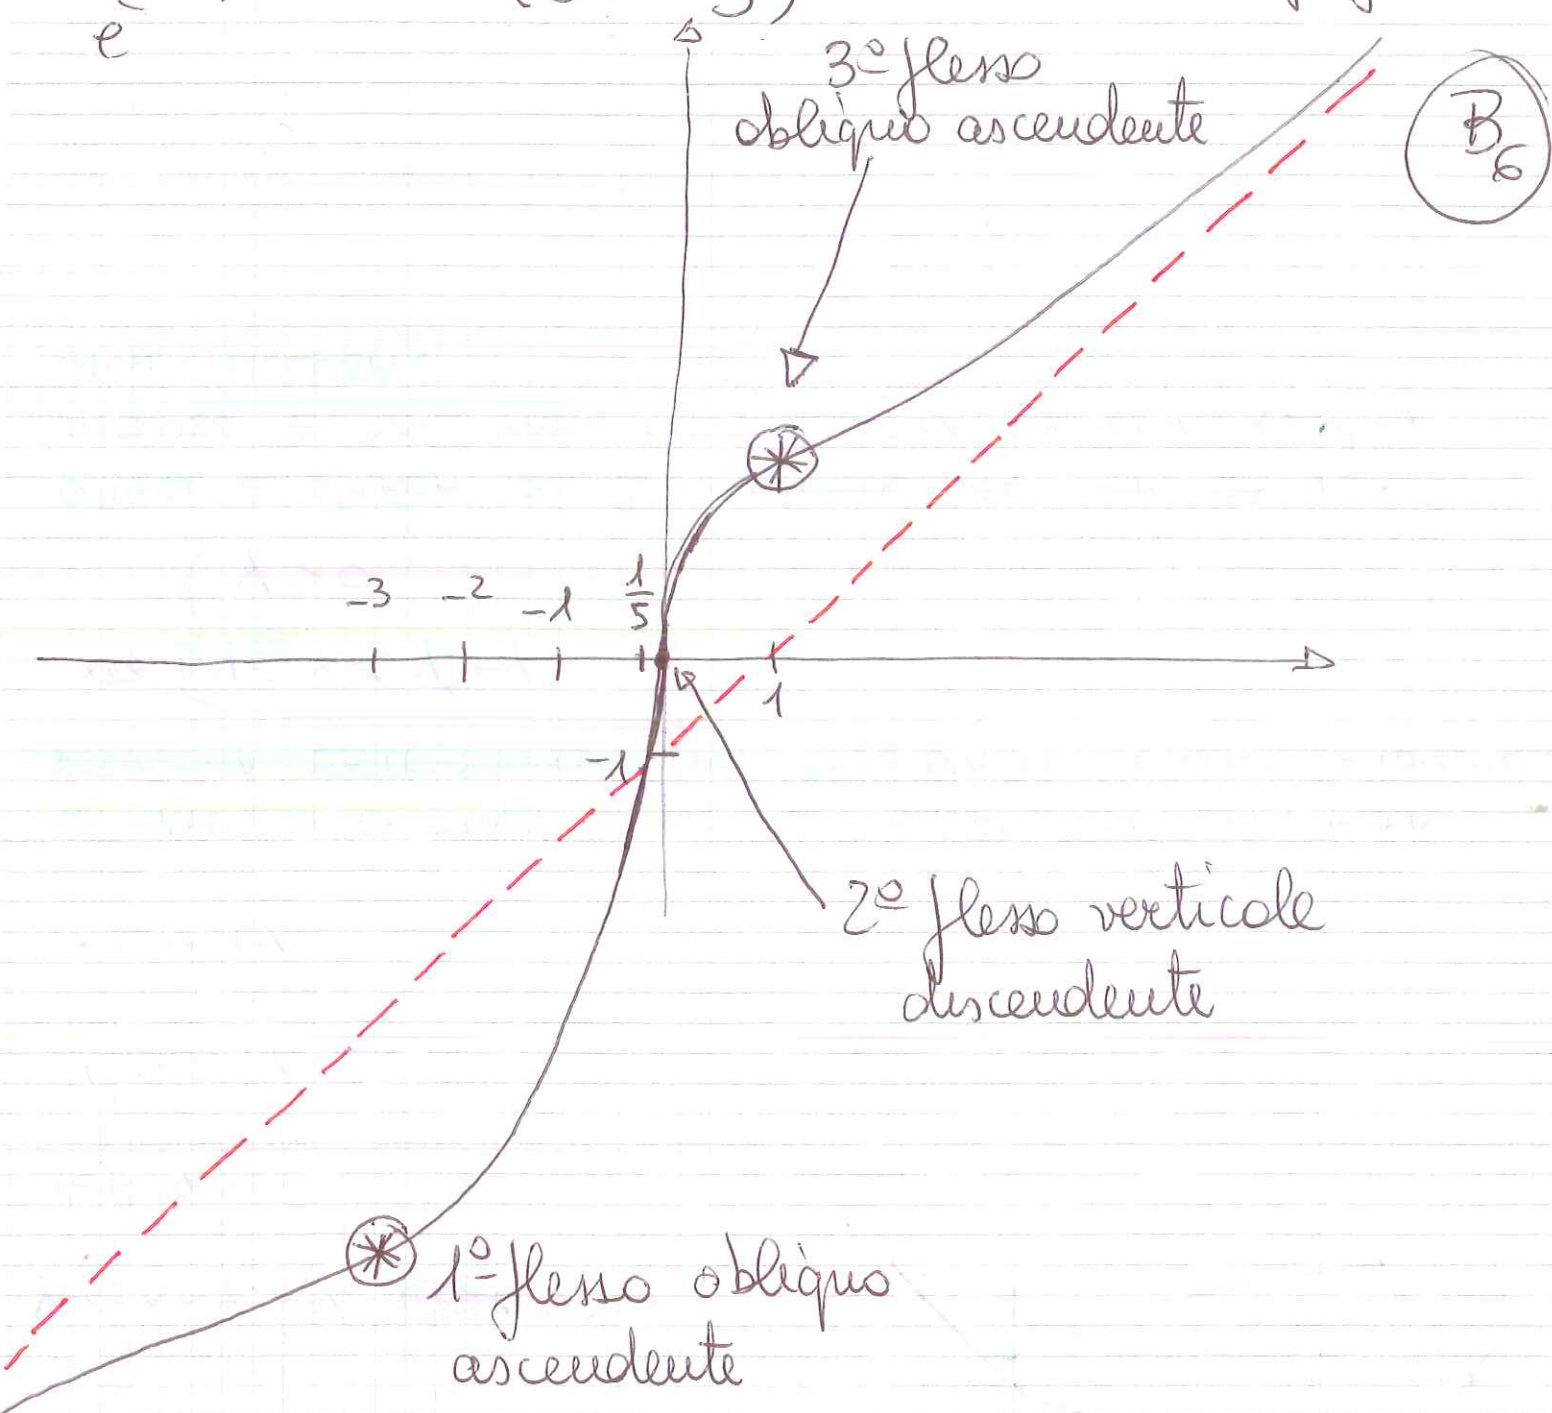 e
3º flesso
obliquo ascendente
B6
-3 -2 -1 1/5
1
-1
2º flesso verticale
discendente
1º flesso obliquo
ascendente